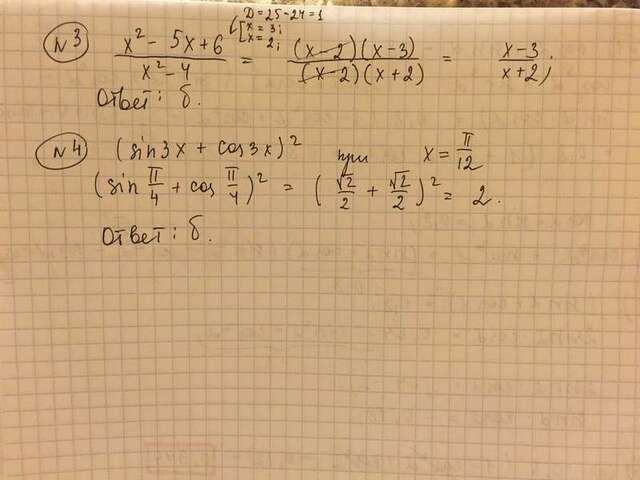 D = 25 - 24 = 1
x = 3;
x = 2;
N3 (x² - 5x + 6)/(x² - 4) = ((x-2)(x-3))/((x-2)(x+2)) = (x-3)/(x+2);
Ответ: б.
N4 (sin3x + cos3x)² при x = π/12
(sin π/4 + cos π/4)² = (√2/2 + √2/2)² = 2.
Ответ: б.